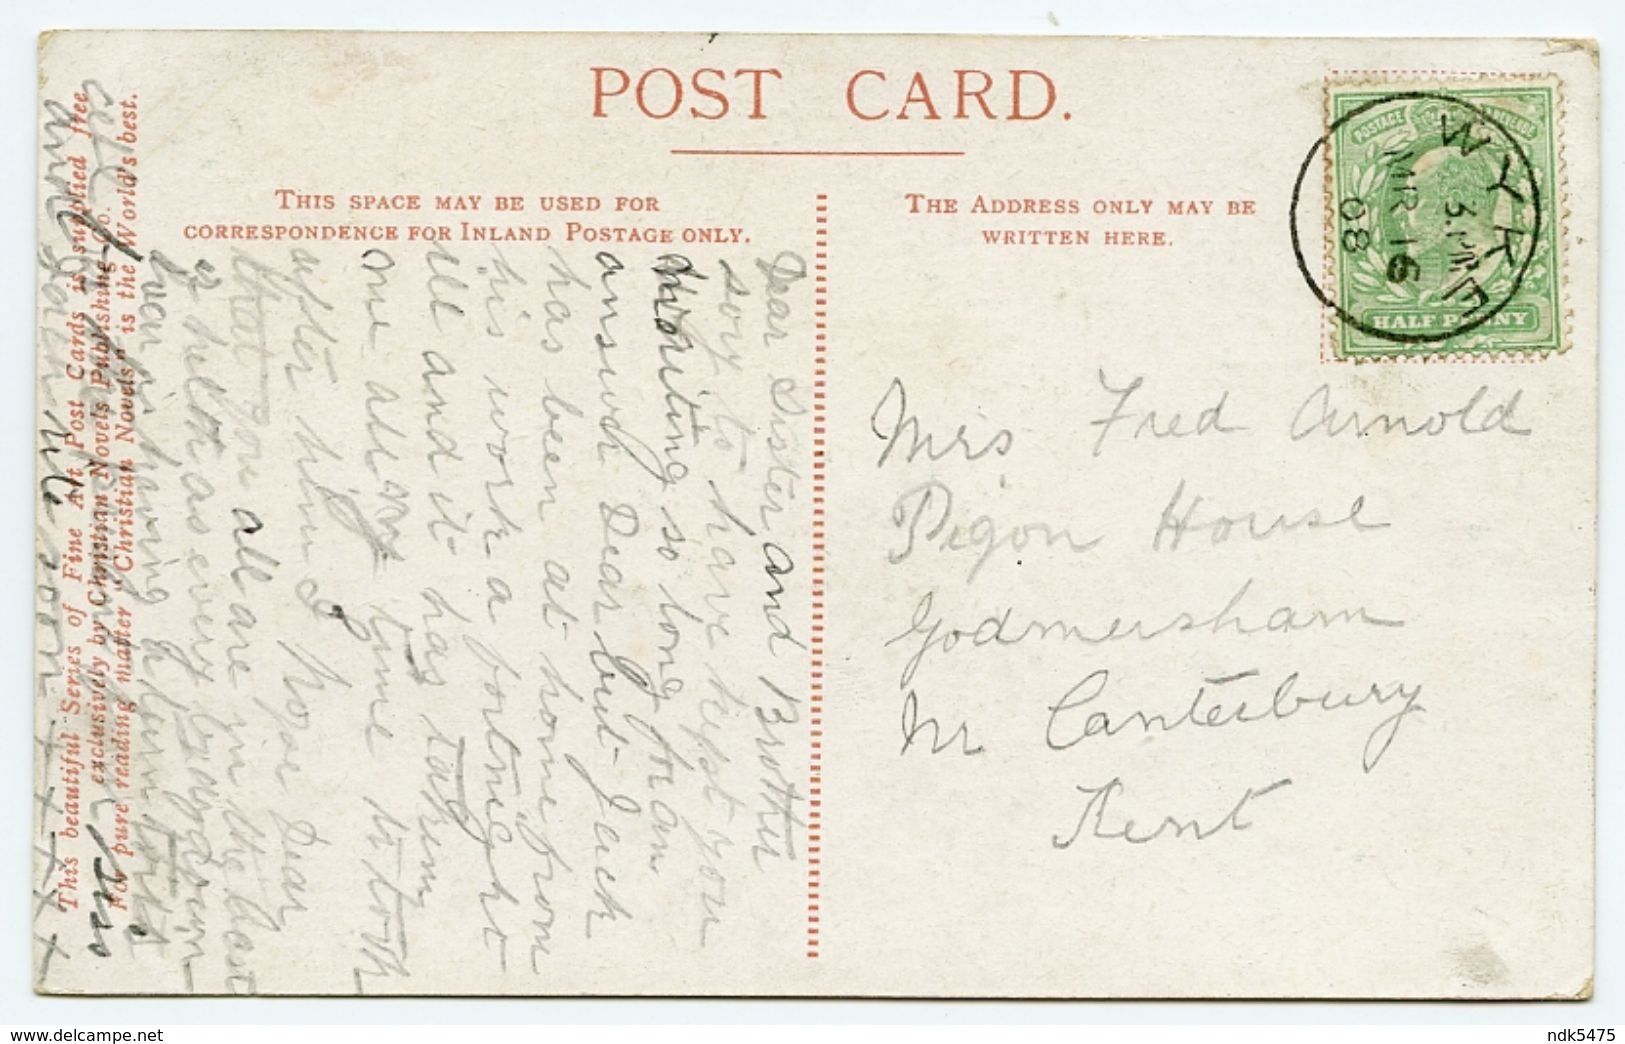 POST CARD.
THIS SPACE MAY BE USED FOR
CORRESPONDENCE FOR INLAND POSTAGE ONLY.
THE ADDRESS ONLY MAY BE
WRITTEN HERE.
POSTAGE REVENUE
HALF PENNY
WYKE
MR 16
08
Mrs Fred Arnold
Pigon House
Godmersham
Nr Canterbury
Kent
Dear Sister and Brother
sory to have kept you
waiting so long for an
answer Dear but Jack
has been at home from
his work a fortnight
ill and it has taken
me all my time to look
after him I hope Dear
that you all are in the best
of helth as ever
having
and
soon x x x x x
This beautiful Series of Fine Art Post Cards is supplied free
exclusively by Christian Novels Publishing Co.
For pure reading matter "Christian Novels" is the World's best.
www.delcampe.net
ndk5475